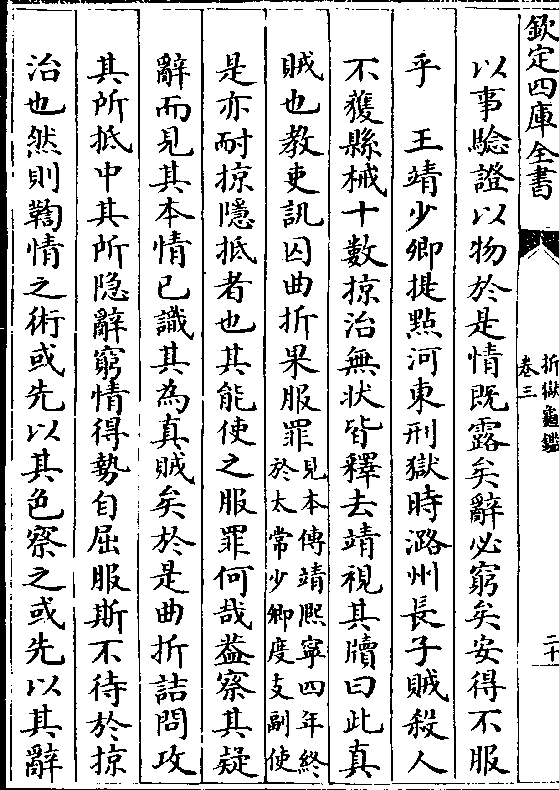 欽定四庫全書
折獄龜鑑
卷三
二十
以事驗證以物於是情既露矣辭必窮矣安得不服
乎　王靖少卿提㸃河東刑獄時潞州長子賊殺人
不獲縣械十數掠治無状皆釋去靖視其牘曰此真
賊也教吏訊囚曲折果服罪見本傳靖熈寧四年終
於太常少卿度支副使
是亦耐掠隱抵者也其能使之服罪何哉葢察其疑
辭而見其本情已識其為真賊矣於是曲折詰問攻
其所抵中其所隐辭窮情得勢自屈服斯不待於掠
治也然則鞫情之術或先以其色察之或先以其辭